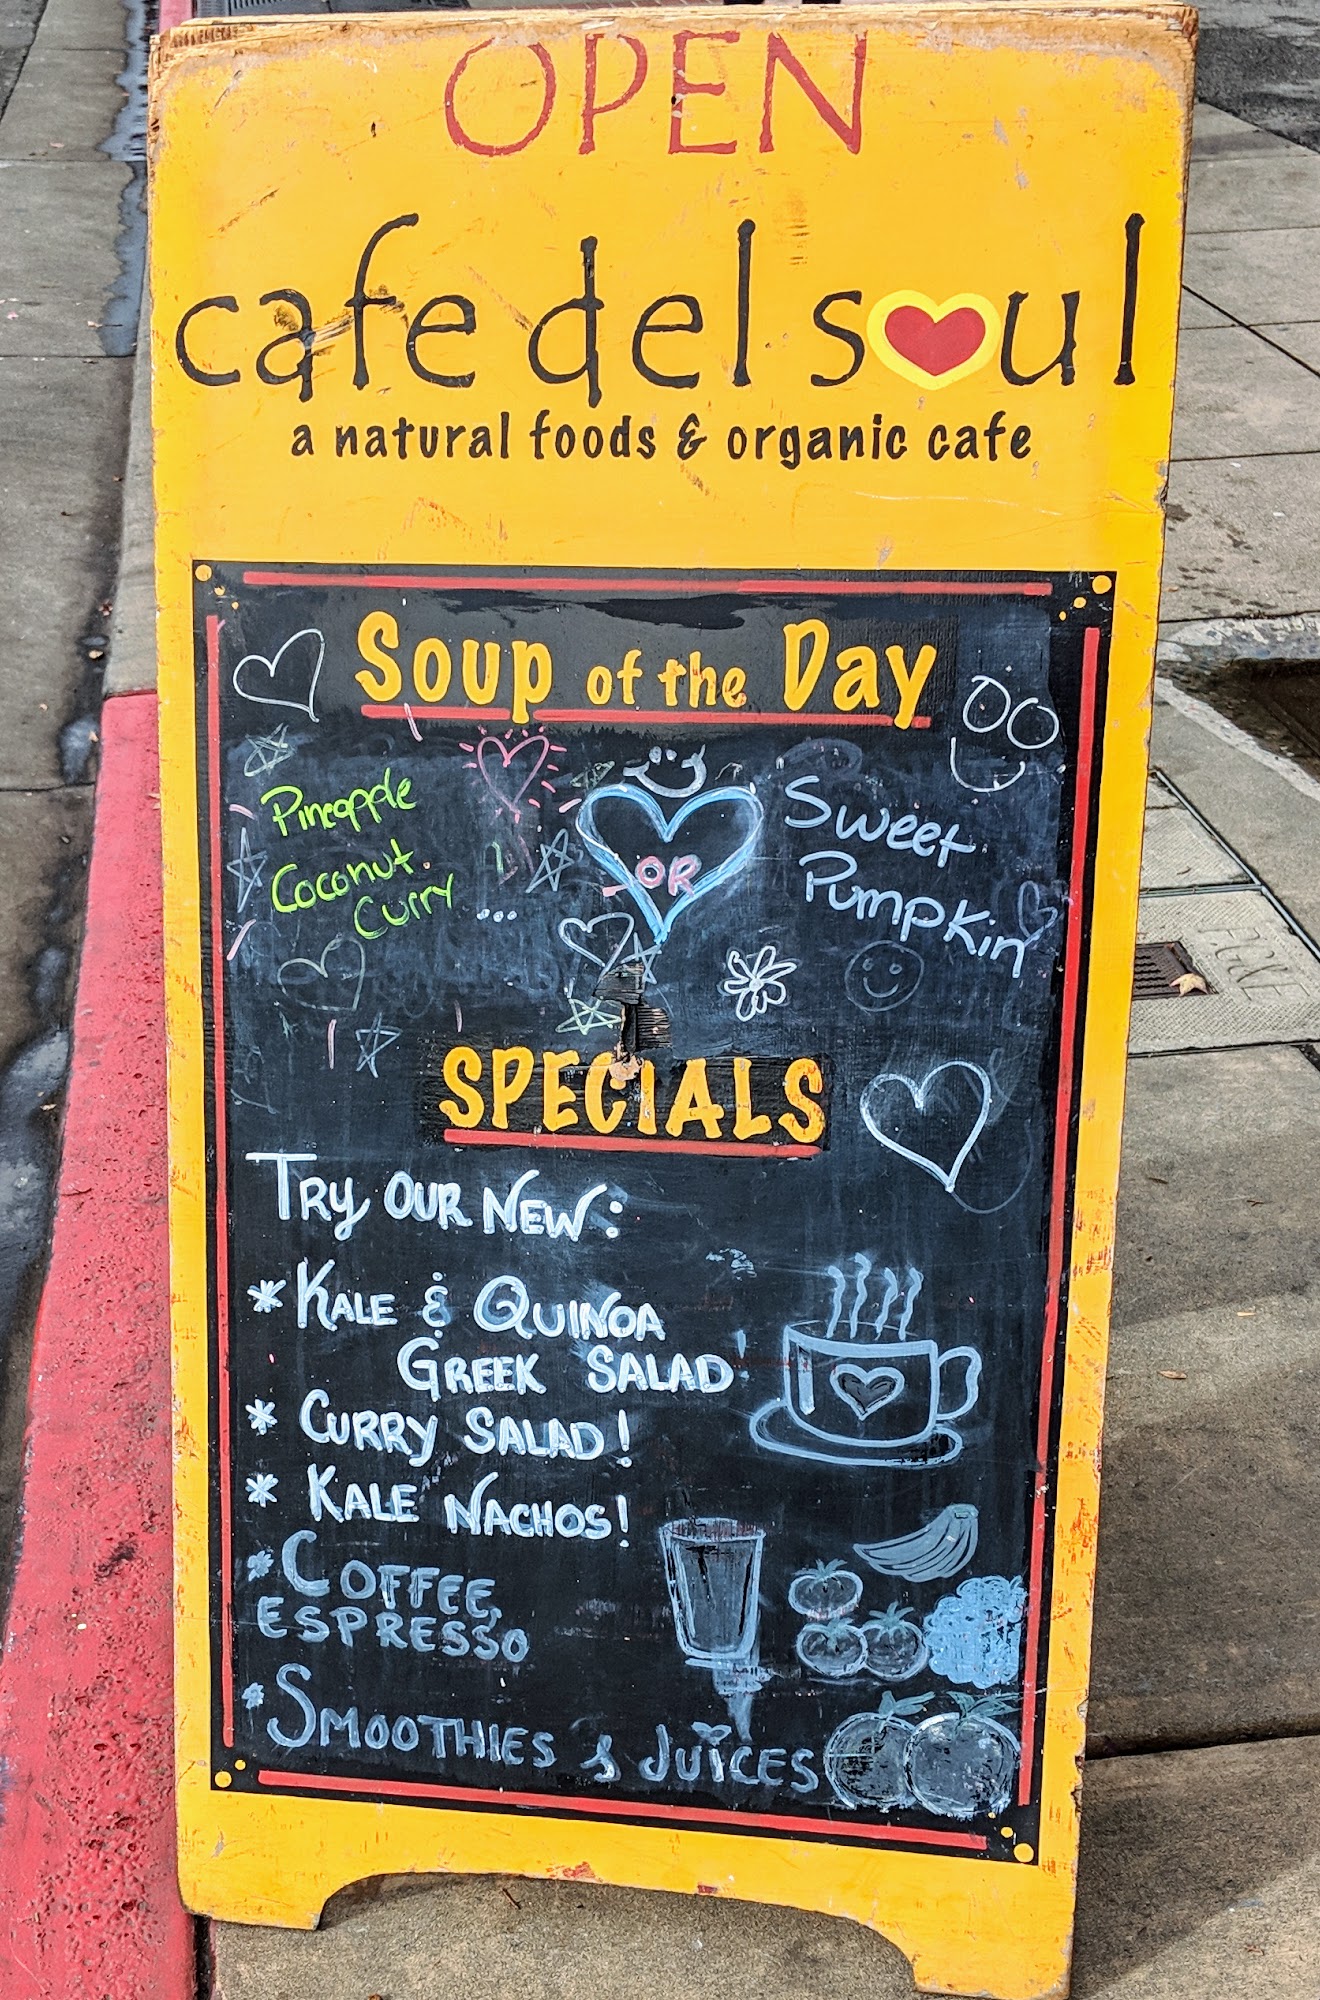 OPEN
cafe del soul
a natural foods & organic cafe
Soup of the Day
Pineapple
Coconut
Curry ...
OR
Sweet
Pumpkin
SPECIALS
TRY OUR NEW:
* KALE & QUINOA
GREEK SALAD
* CURRY SALAD!
* KALE NACHOS!
* COFFEE,
ESPRESSO
* SMOOTHIES & JUICES